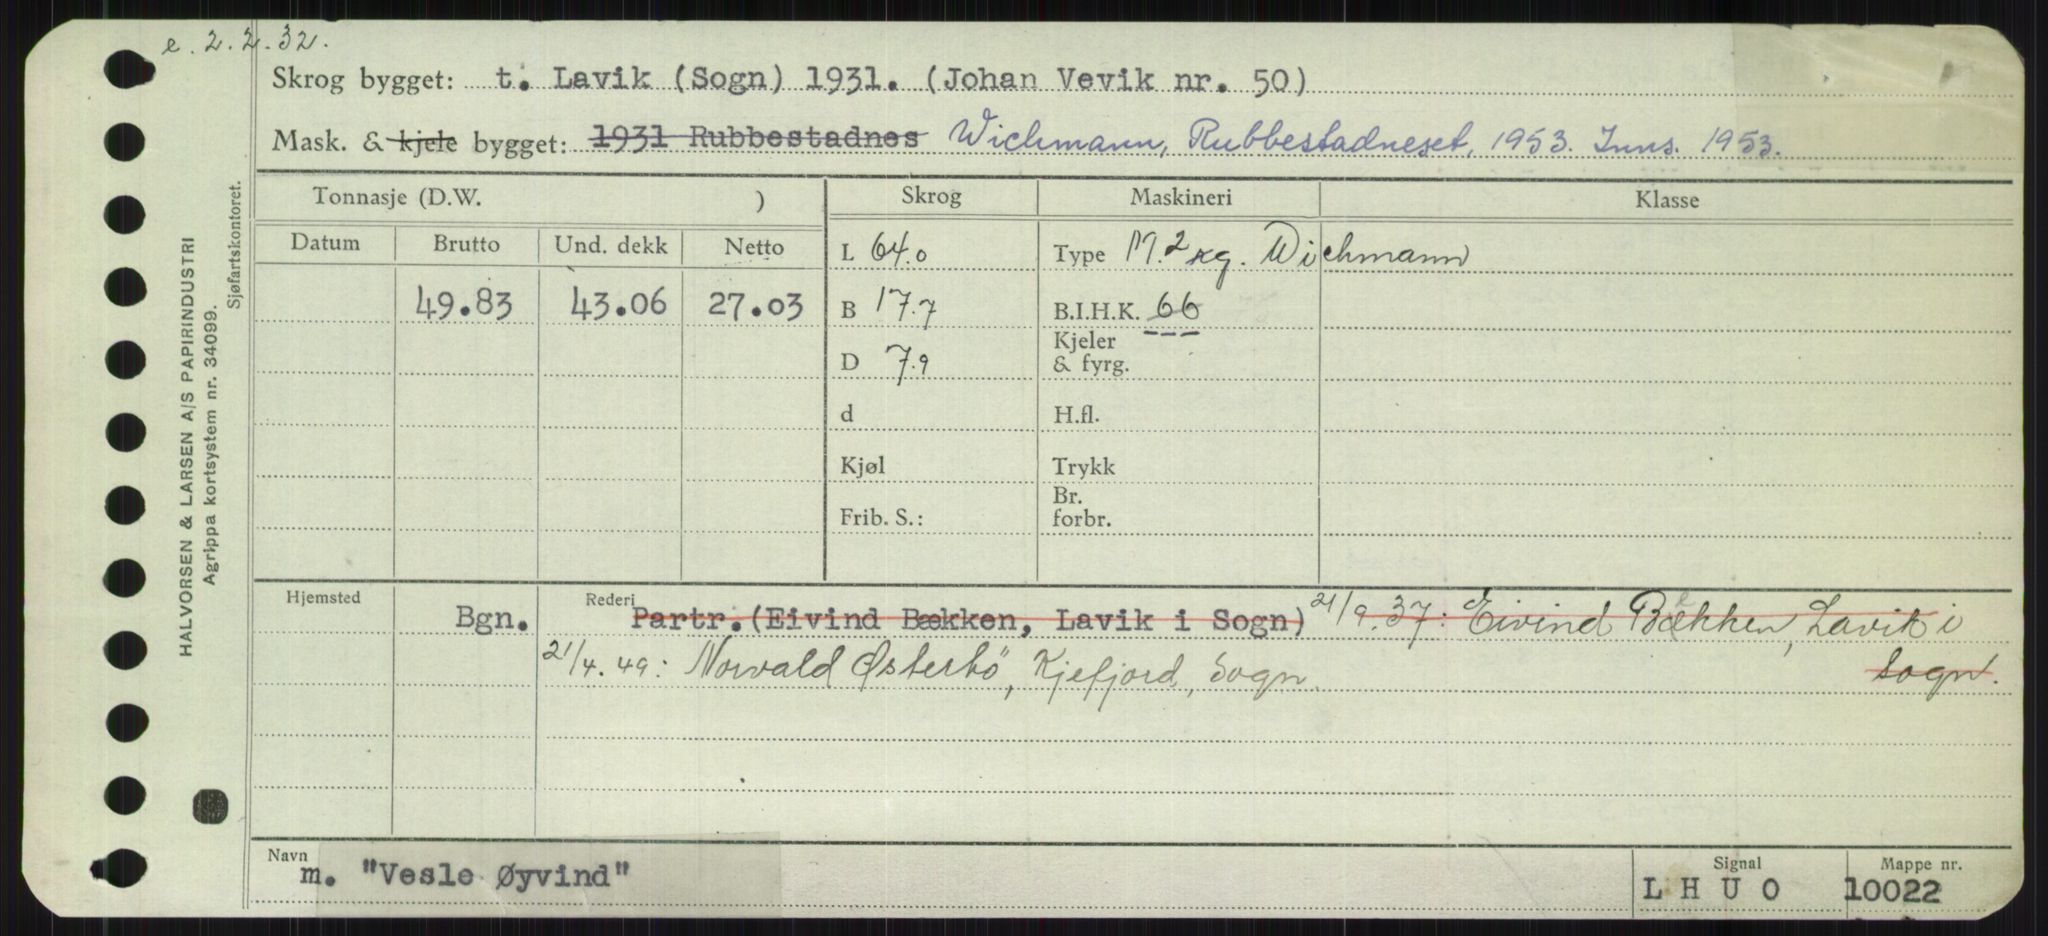 e. 2.2.32.
Skrog bygget: t. Lavik (Sogn) 1931. (Johan Vevik nr. 50)
Mask. & kjele bygget: 1931 Rubbestadnes Wichmann, Rubbestadneset, 1953. Inns. 1953.
Tonnasje (D.W. ) Skrog Maskineri Klasse
Datum Brutto Und. dekk Netto L 64.0 Type M. 2 sg. Wichmann
49.83 43.06 27.03 B 17.7 B.I.H.K. 66
Kjeler
D 7.9 & fyrg.
d H.fl.
Kjøl Trykk
Br.
Frib. S.: forbr.
Hjemsted Rederi
Bgn. Partr. (Eivind Bækken, Lavik i Sogn) 21/9.37: Eivind Bækken, Lavik i
Sogn.
21/4.49: Norvald Østerbö, Kjefjord, Sogn.
Navn Signal Mappe nr.
m. "Vesle Øyvind" L H U O 10022
HALVORSEN & LARSEN A/S PAPIRINDUSTRI
Agrippa kortsystem nr. 34099.
Sjøfartskontoret.